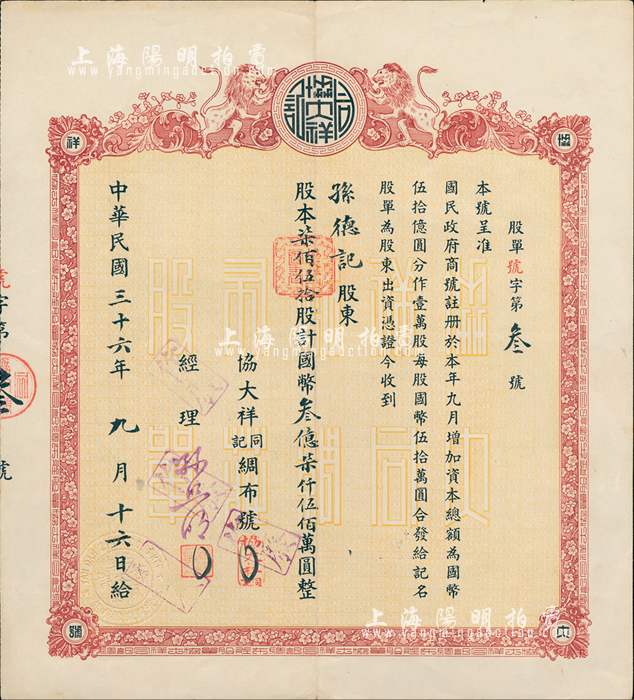 上海陽明拍賣
www.yangmingauction.com
協大祥同記
股單號字第叁號
本號呈准
國民政府商號註册於本年九月增加資本總額為國幣
伍拾億圓分作壹萬股每股國幣伍拾萬圓合發給記名
股單為股東出資憑證今收到
孫德記股東
股本柒佰伍拾股計國幣叁億柒仟伍佰萬圓整
協大祥同記綢布號
經理
中華民國三十六年九月十六日給
號字第叁號
祥
協
號
大
上海陽明拍賣
www.yangmingauction.com
上海陽明拍賣
www.yangmingauction.com